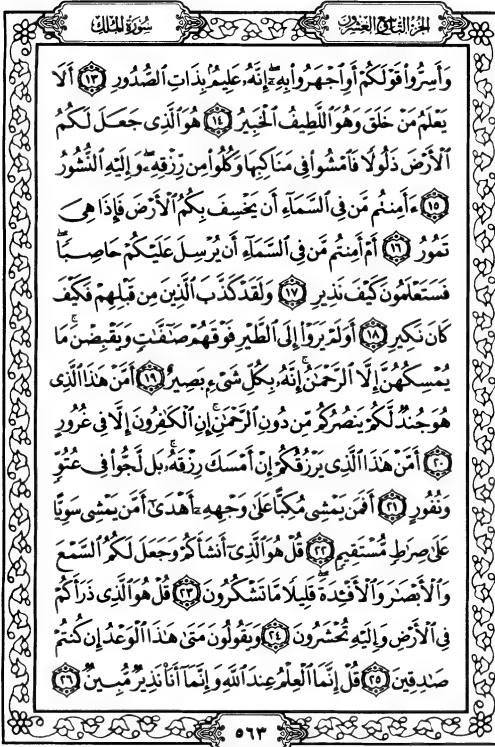 سُورَةُ المُلْكِ
الجُزءُ التَّاسِع وَالعِشْرُونَ
وَأَسِرُّوا۟ قَوْلَكُمْ أَوِ ٱجْهَرُوا۟ بِهِۦٓ إِنَّهُۥ عَلِيمٌۢ بِذَاتِ ٱلصُّدُورِ ١٣ أَلَا
يَعْلَمُ مَنْ خَلَقَ وَهُوَ ٱللَّطِيفُ ٱلْخَبِيرُ ١٤ هُوَ ٱلَّذِى جَعَلَ لَكُمُ
ٱلْأَرْضَ ذَلُولًا فَٱمْشُوا۟ فِى مَنَاكِبِهَا وَكُلُوا۟ مِن رِّزْقِهِۦ وَإِلَيْهِ ٱلنُّشُورُ
١٥ ءَأَمِنتُم مَّن فِى ٱلسَّمَآءِ أَن يَخْسِفَ بِكُمُ ٱلْأَرْضَ فَإِذَا هِىَ
تَمُورُ ١٦ أَمْ أَمِنتُم مَّن فِى ٱلسَّمَآءِ أَن يُرْسِلَ عَلَيْكُمْ حَاصِبًا
فَسَتَعْلَمُونَ كَيْفَ نَذِيرِ ١٧ وَلَقَدْ كَذَّبَ ٱلَّذِينَ مِن قَبْلِهِمْ فَكَيْفَ
كَانَ نَكِيرِ ١٨ أَوَلَمْ يَرَوْا۟ إِلَى ٱلطَّيْرِ فَوْقَهُمْ صَٰٓفَّٰتٍ وَيَقْبِضْنَ مَا
يُمْسِكُهُنَّ إِلَّا ٱلرَّحْمَٰنُ إِنَّهُۥ بِكُلِّ شَىْءٍۭ بَصِيرٌ ١٩ أَمَّنْ هَٰذَا ٱلَّذِى
هُوَ جُندٌ لَّكُمْ يَنصُرُكُم مِّن دُونِ ٱلرَّحْمَٰنِ إِنِ ٱلْكَٰفِرُونَ إِلَّا فِى غُرُورٍ
٢٠ أَمَّنْ هَٰذَا ٱلَّذِى يَرْزُقُكُمْ إِنْ أَمْسَكَ رِزْقَهُۥ بَل لَّجُّوا۟ فِى عُتُوٍّ
وَنُفُورٍ ٢١ أَفَمَن يَمْشِى مُكِبًّا عَلَىٰ وَجْهِهِۦٓ أَهْدَىٰٓ أَمَّن يَمْشِى سَوِيًّا
عَلَىٰ صِرَٰطٍ مُّسْتَقِيمٍ ٢٢ قُلْ هُوَ ٱلَّذِىٓ أَنشَأَكُمْ وَجَعَلَ لَكُمُ ٱلسَّمْعَ
وَٱلْأَبْصَٰرَ وَٱلْأَفْـِٔدَةَ قَلِيلًا مَّا تَشْكُرُونَ ٢٣ قُلْ هُوَ ٱلَّذِى ذَرَأَكُمْ
فِى ٱلْأَرْضِ وَإِلَيْهِ تُحْشَرُونَ ٢٤ وَيَقُولُونَ مَتَىٰ هَٰذَا ٱلْوَعْدُ إِن كُنتُمْ
صَٰدِقِينَ ٢٥ قُلْ إِنَّمَا ٱلْعِلْمُ عِندَ ٱللَّهِ وَإِنَّمَآ أَنَا۠ نَذِيرٌ مُّبِينٌ ٢٦
٥٦٣